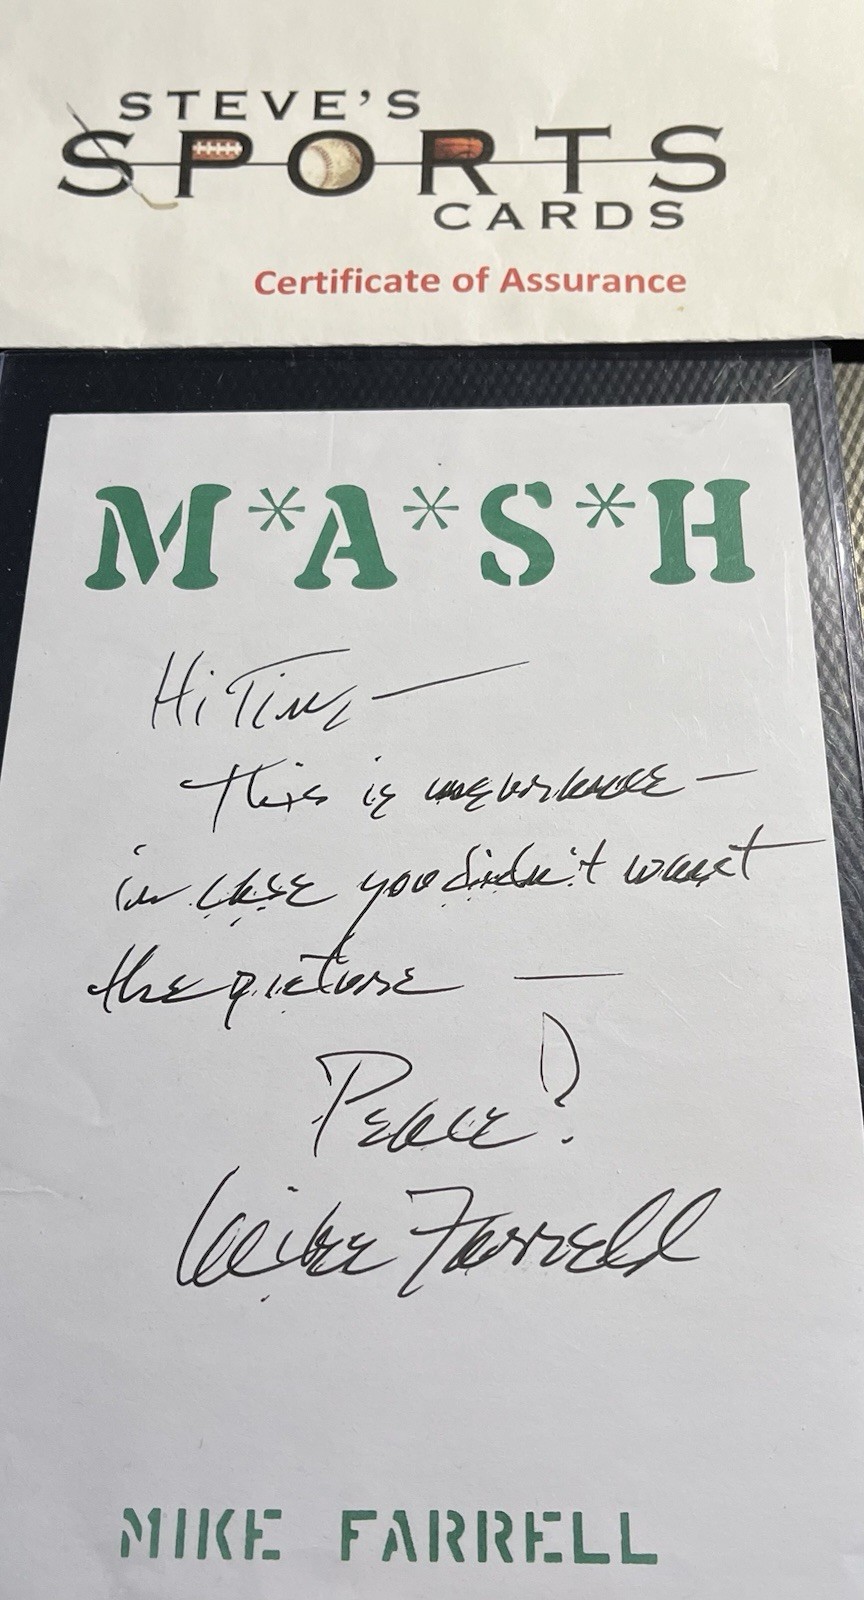 STEVE'S
SPORTS
CARDS
Certificate of Assurance
M*A*S*H
Hi Tim —
This is insurance —
in case you didn't want
the picture —
Peace!
Mike Farrell
MIKE FARRELL